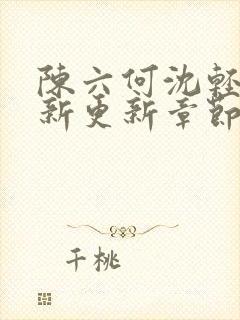 陳六何沈輕
新更新章節
千桃